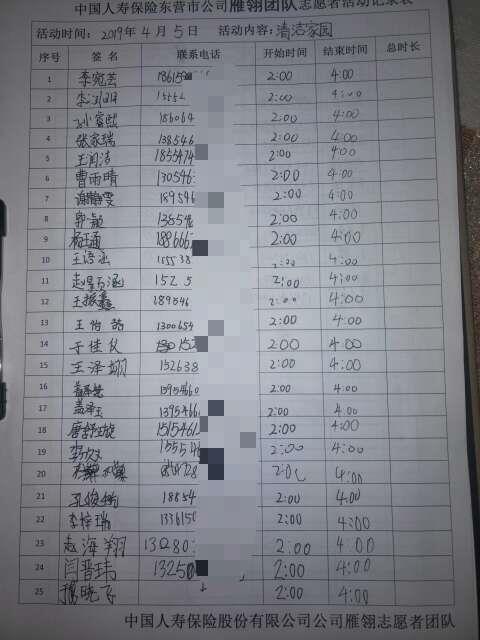 中国人寿保险东营市公司雁翎团队志愿者活动记录表
活动时间: 2019年 4月 5日 活动内容: 清洁家园
序号 签 名 联系电话 开始时间 结束时间 总时长
1 李宛芸 18615 2:00 4:00
2 2:00 4:00
3 孙睿熙 186064 2:00 4:00
4 张家瑞 138546 2:00 4:00
5 王润洁 1855474 2:00 4:00
6 曹雨晴 130546 2:00 4:00
7 谢静雯 189546 2:00 4:00
8 郭颖 138546 2:00 4:00
9 杨玉通 188666 2:00 4:00
10 王语涵 15538 2:00 4:00
11 赵景涵 152 5 2:00 4:00
12 王振鑫 189546 2:00 4:00
13 王怡喆 1300654 2:00 4:00
14 于佳仪 2:00 4:00
15 王泽翊 152638 2:00 4:00
16 2:00 4:00
17 盖泽玉 1395466 2:00 4:00
18 唐舒旋 1515461 2:00 4:00
19 155546 2:00 4:00
20 2:00 4:00
21 孔俊 18854 2:00 4:00
22 李梓瑞 1336150 2:00 4:00
23 赵海翔 13280 2:00 4:00
24 闫晋玮 13250 2:00 4:00
25 杨晓飞 2:00 4:00
中国人寿保险股份有限公司公司雁翎志愿者团队